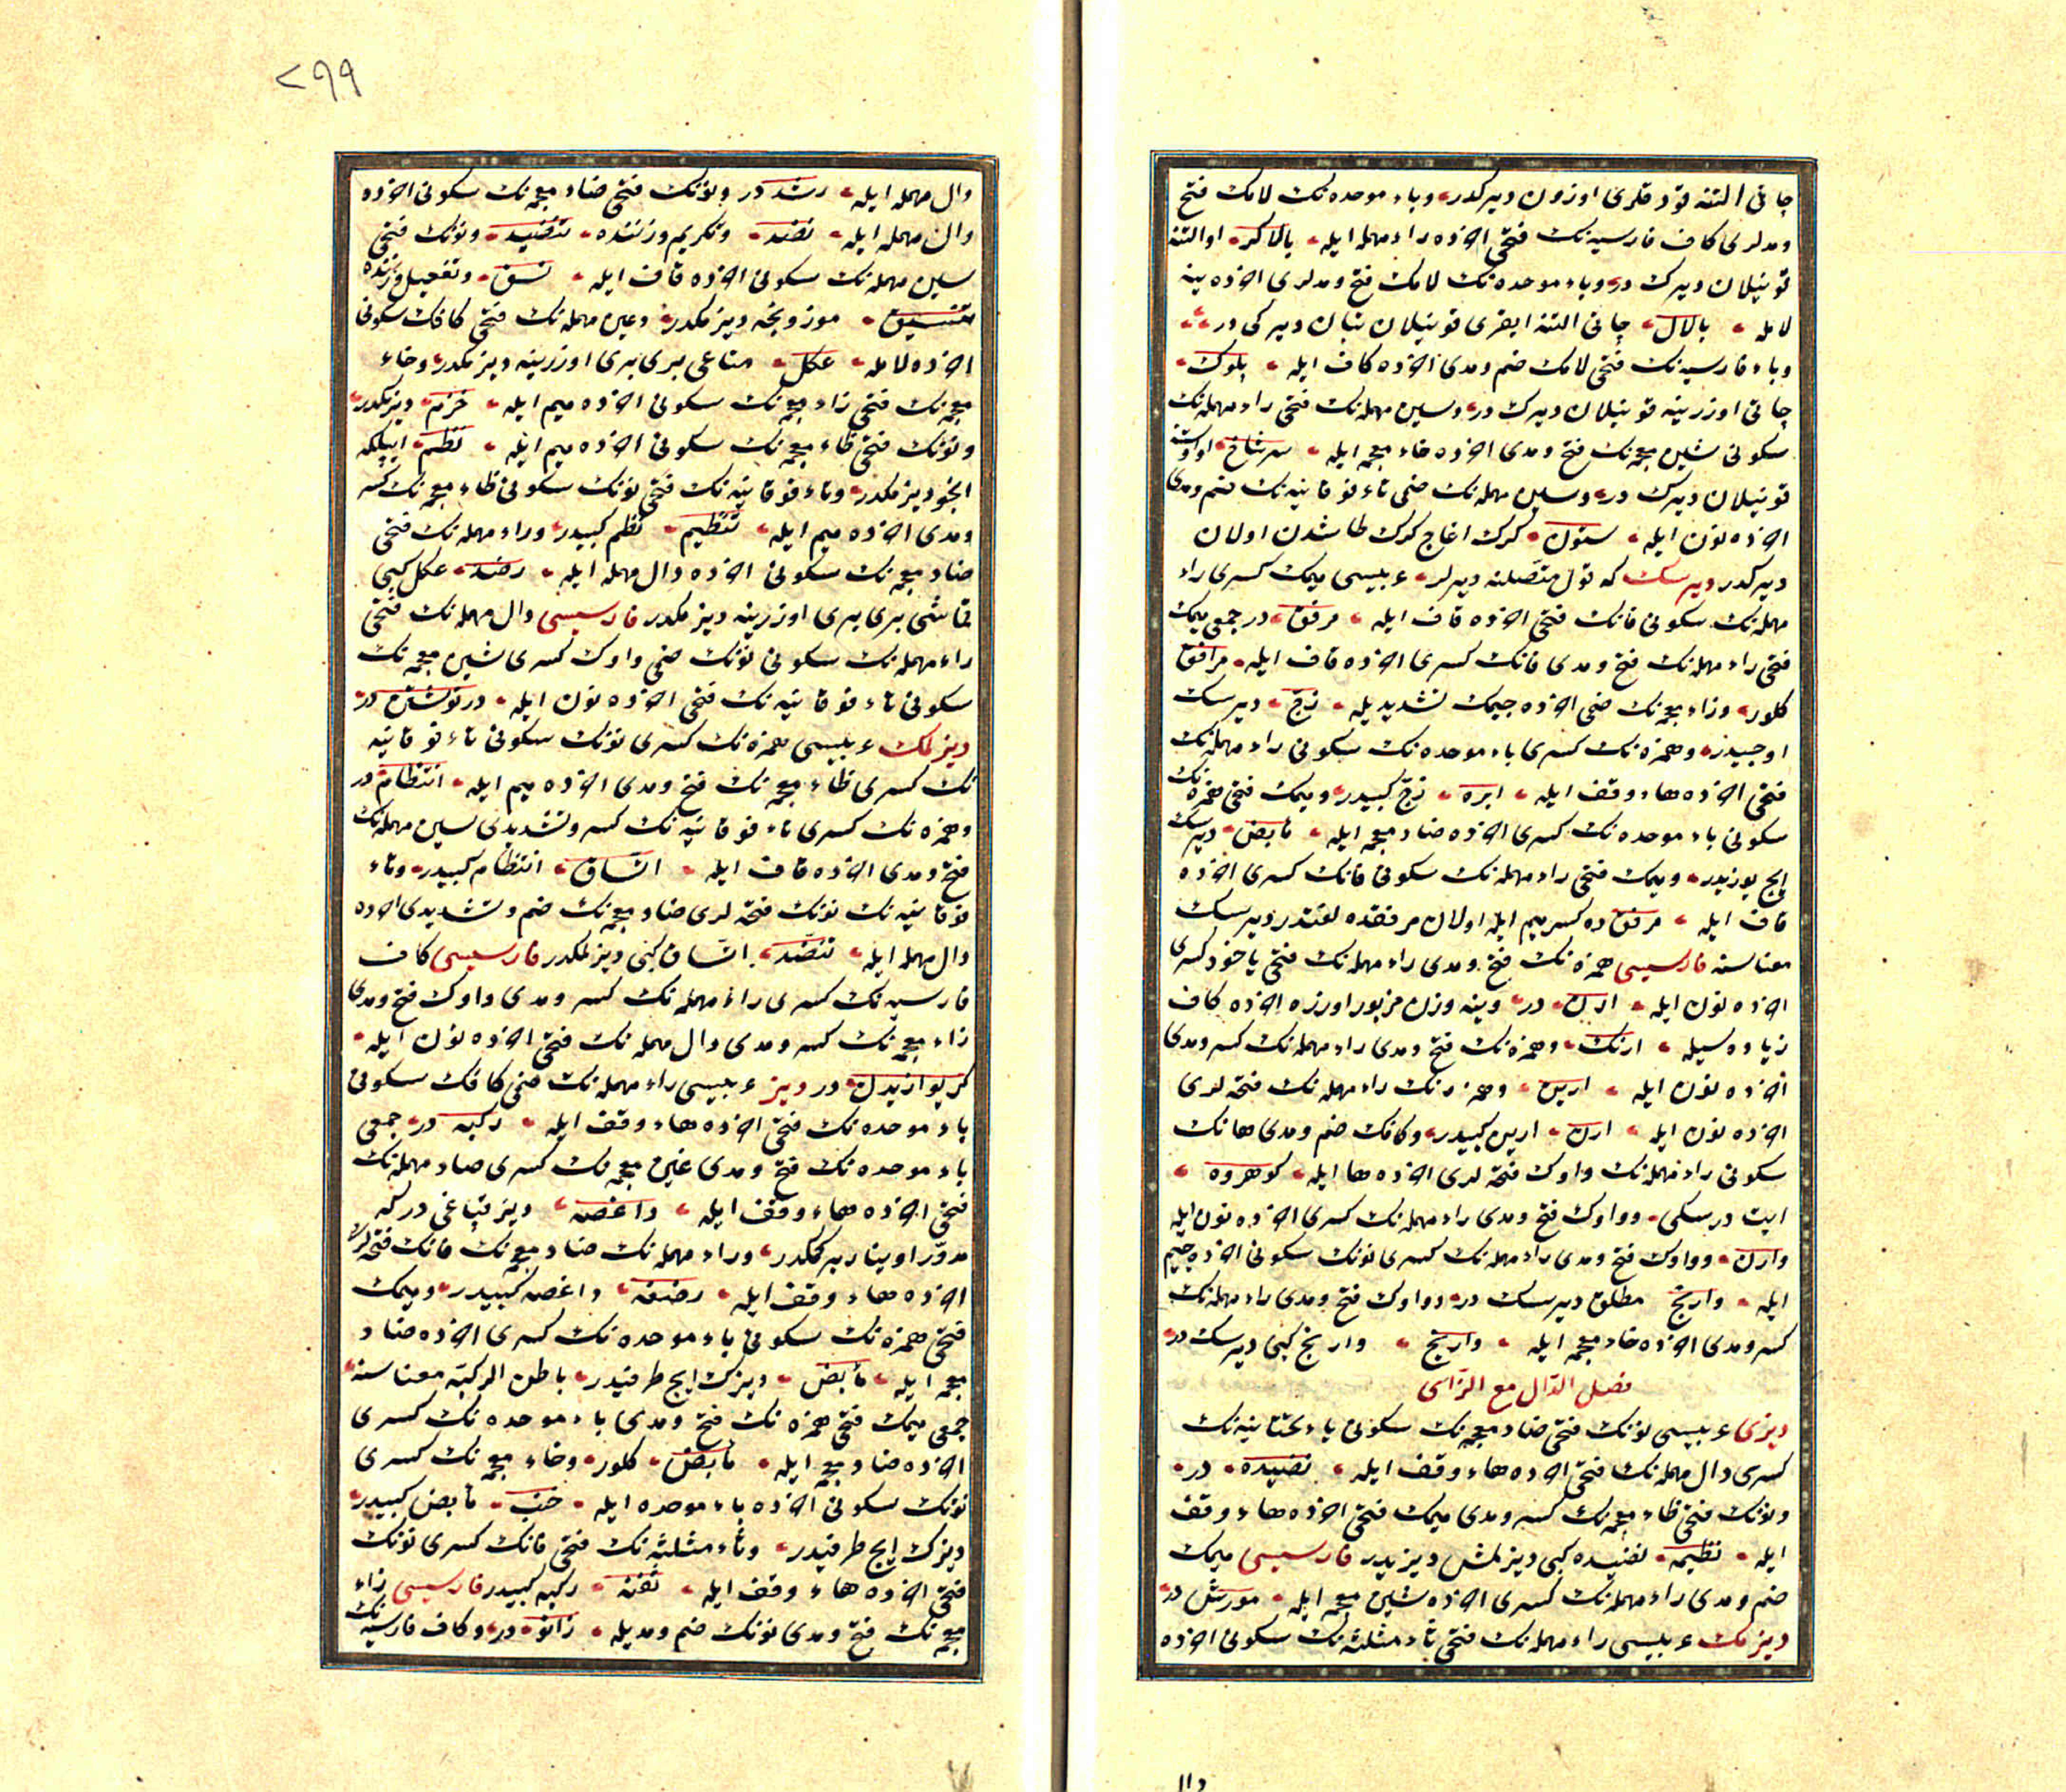 چاتی التنه قودقلری اوزون دیرکدر وباء موحده نک لامک فتح
ومدلری کاف فارسیه نک فتحی اخرده راء مهمله ایله بالاکر اوالتنه
قونیلان دیرک در وباء موحده نک لامک فتح ومدلری اخرده ینه
لامله بالال چاتی التنه ایغری قونیلان بنان دیرکی در
وباء فارسیه نک فتحی لامک ضم ومدی اخرده کاف ایله پلوک
چاتی اوزرینه قونیلان دیرک در وسین مهمله نک فتحی راء مهمله نک
سکونی شین معجمه نک فتح ومدی اخرده خاء معجمه ایله سرشاخ اواوستنه
قونیلان دیرک در وسین مهمله نک ضمی تاء فوقانیه نک ضم ومدی
اخرده نون ایله ستون کرک اغاج کرک طاشدن اولان
دیرکدر دیرسک که قول متصلنه دیرلر عربیسی میمک کسری راء
مهمله نک سکونی فانک فتحی اخرده قاف ایله مرفق در جمعی میمک
فتحی راء مهمله نک فتح ومدی فانک کسری اخرده قاف ایله مرافق
کلور وزاء معجمه نک ضمی اخرده جیمک تشدیدیله زج دیرسک
اوجیدر وهمزه نک کسری باء موحده نک سکونی راء مهمله نک
فتحی اخرده هاء وقف ایله ابره زج کبیدر ومیمک فتحی همزه نک
سکونی باء موحده نک کسری اخرده ضاد معجمه ایله مأبض دیرسک
ایچ یوزیدر ومیمک فتحی راء مهمله نک سکونی فانک کسری اخرده
قاف ایله مرفق ده کسر میم ایله اولان مرفقده لغتدر دیرسک
معناسنه فارسیسی همزه نک فتح ومدی راء مهمله نک فتحی یاخود کسری
اخرده نون ایله ارن در وینه وزن مزبور اوزره اخرده کاف
زیاده سیله ارنک وهمزه نک فتح ومدی راء مهمله نک کسر ومدی
اخرده نون ایله ارین وهمزه نک راء مهمله نک فتحه لری
اخرده نون ایله ارن ارین کبیدر وکافک ضم ومدی هانک
سکونی راء مهمله نک واوک فتحه لری اخرده ها ایله کوهروه
ایت درسکی وواوک فتح ومدی راء مهمله نک کسری اخرده نون ایله
وارن وواوک فتح ومدی راء مهمله نک کسری نونک سکونی اخرده جیم
ایله وارنج مطلق دیرسک در وواوک فتح ومدی راء مهمله نک
کسر ومدی اخرده خاء معجمه ایله واریخ وارنج کبی دیرسک در
فصل الدال مع الزای
دیزی عربیسی نونک فتحی ضاد معجمه نک سکونی یاء تحتانیه نک
کسری دال مهمله نک فتحی اخرده هاء وقف ایله نضیده در
ونونک فتحی ظاء معجمه نک کسر ومدی میمک فتحی اخرده هاء وقف
ایله نظیمه نضیده کبی دیزلمش دیزیدر فارسیسی میمک
ضم ومدی راء مهمله نک کسری اخرده شین معجمه ایله مورش در
دیزمک عربیسی راء مهمله نک فتحی ثاء مثلثه نک سکونی اخرده
دال
۲۹۹
دال مهمله ایله رثد در ونونک فتحی ضاد معجمه نک سکونی اخرده
دال مهمله ایله نضد وتکریم وزننده تنضید ونونک فتحی
سین مهمله نک سکونی اخرده قاف ایله نسق وتفعیل وزننده
تنسیق موزونجه دیزمکدر وعین مهمله نک فتحی کافک سکونی
اخرده لامله عکل متاعی بری بری اوزرینه دیزمکدر وخاء
معجمه نک فتحی زاء معجمه نک سکونی اخرده میم ایله خزم دیزمکدر
ونونک فتحی ظاء معجمه نک سکونی اخرده میم ایله نظم ایپلکه
انجو دیزمکدر وتاء فوقانیه نک فتحی نونک سکونی ظاء معجمه نک کسر
ومدی اخرده میم ایله تنظیم نظم کبیدر وراء مهمله نک فتحی
ضاد معجمه نک سکونی اخرده دال مهمله ایله رضد عکل کبی
قماشی بری بری اوزرینه دیزمکدر فارسیسی دال مهمله نک فتحی
راء مهمله نک سکونی نونک ضمی واوک کسری شین معجمه نک
سکونی تاء فوقانیه نک فتحی اخرده نون ایله درنوشتن در
دیزلمک عربیسی همزه نک کسری نونک سکونی تاء فوقانیه
نک کسری ظاء معجمه نک فتح ومدی اخرده میم ایله انتظام در
وهمزه نک کسری تاء فوقانیه نک کسر وتشدیدی سین مهمله نک
فتح ومدی اخرده قاف ایله اتساق انتظام کبیدر وتاء
فوقانیه نک نونک فتحه لری ضاد معجمه نک ضم وتشدیدی اخرده
دال مهمله ایله تنضد اتساق کبی دیزلمکدر فارسیسی کاف
فارسیه نک کسری راء مهمله نک کسر ومدی واوک فتح ومدی
زاء معجمه نک کسر ومدی دال مهمله نک فتحی اخرده نون ایله
کریوازیدن در دیز عربیسی راء مهمله نک ضمی کافک سکونی
باء موحده نک فتحی اخرده هاء وقف ایله رکبه در جمعی
باء موحده نک فتح ومدی غین معجمه نک کسری صاد مهمله نک
فتحی اخرده هاء وقف ایله داغصه دیز قپاغی درکه
مدور اوینار بر کمکدر وراء مهمله نک ضاد معجمه نک فانک فتحه لری
اخرده هاء وقف ایله رضفه داغصه کبیدر ومیمک
فتحی همزه نک سکونی باء موحده نک کسری اخرده ضاد
معجمه ایله مأبض دیزک ایچ طرفیدر باطن الرکبه معناسنه
جمعی میمک فتحی همزه نک فتح ومدی باء موحده نک کسری
اخرده ضاد معجمه ایله مآبض کلور وخاء معجمه نک کسری
نونک سکونی اخرده باء موحده ایله خنب مأبض کبیدر
دیزک ایچ طرفیدر وثاء مثلثه نک فتحی فانک کسری نونک
فتحی اخرده هاء وقف ایله ثفنه رکبه کبیدر فارسیسی زاء
معجمه نک فتح ومدی نونک ضم ومدیله زانو در وکاف فارسیه نک